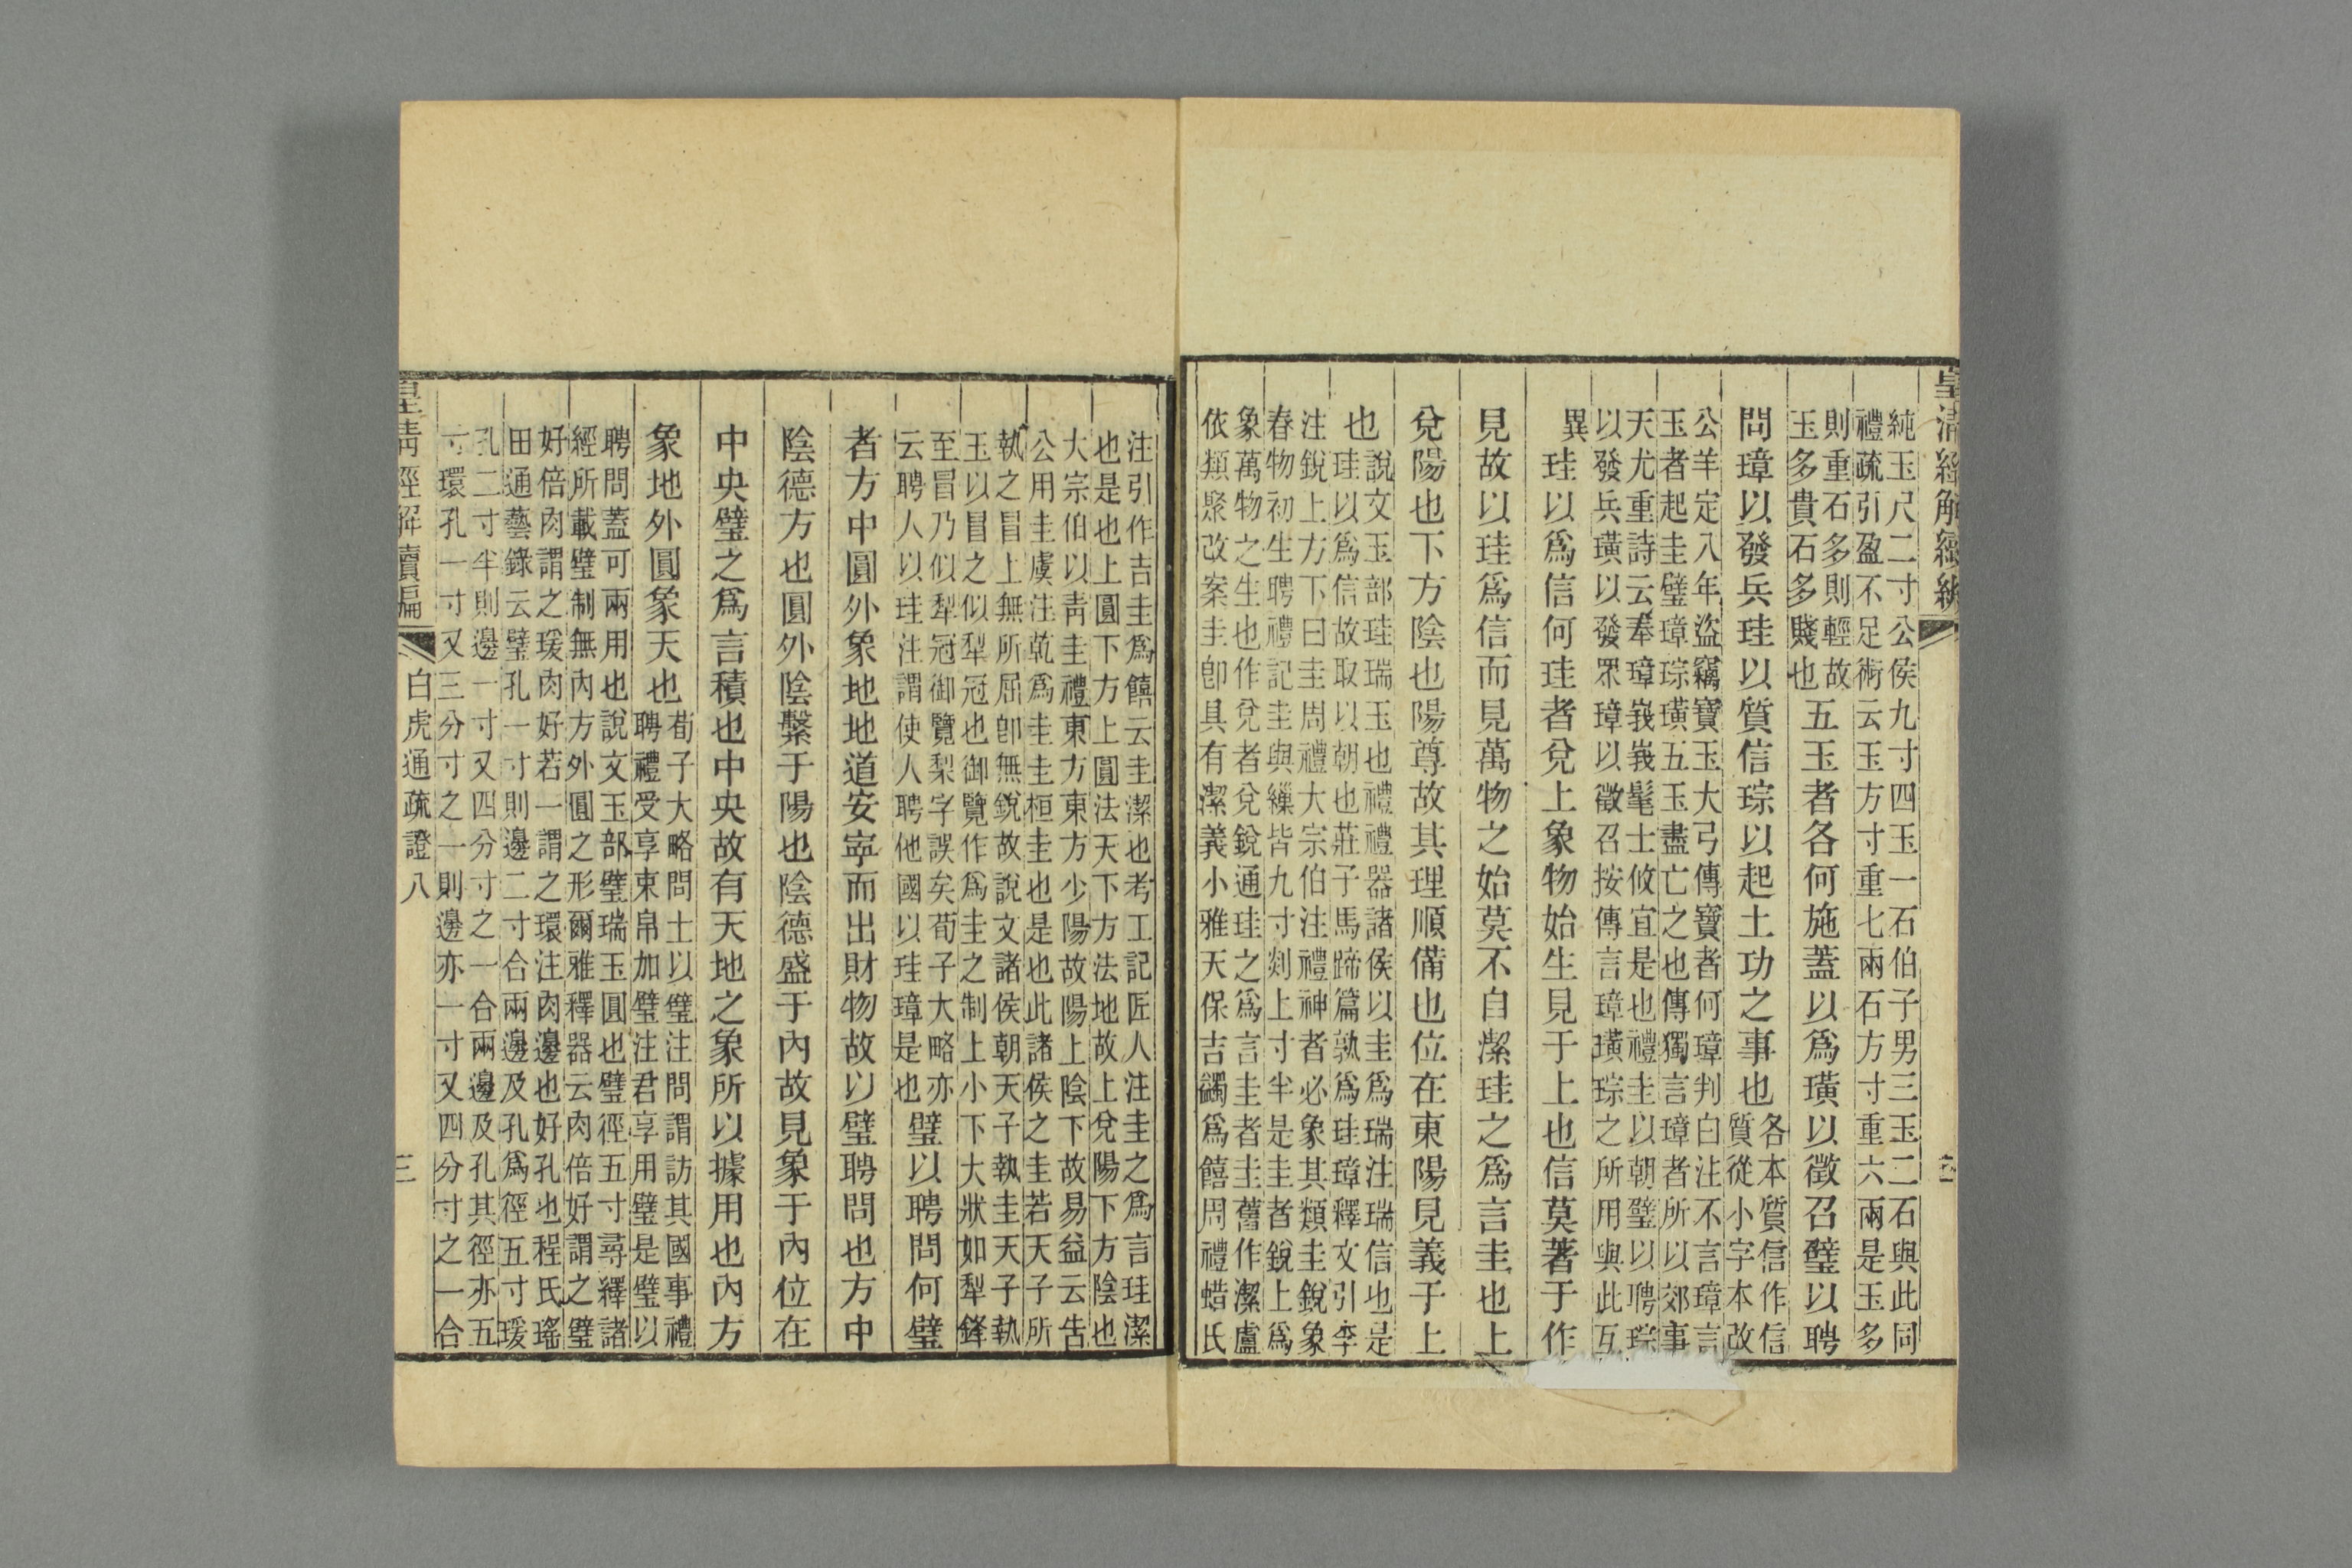 皇清經解續編
純玉尺二寸公侯九寸四玉一石伯子男三玉二石與此同
禮疏引盈不足術云玉方寸重七兩石方寸重六兩是玉多
則重石多則輕故
玉多貴石多賤也
五玉者各何施蓋以爲璜以徵召璧以聘
問璋以發兵珪以質信琮以起土功之事也
各本質信作信
質從小字本改
公羊定八年盜竊寶玉大弓傳寶者何璋判白注不言璋言
玉者起圭璧璋琮璜五玉盡亡之也傳獨言璋者所以郊事
天尤重詩云奉璋峩峩髦士攸宜是也禮圭以朝璧以聘琮
以發兵璜以發眾璋以徵召按傳言璋璜琮之所用與此互
異
珪以爲信何珪者兌上象物始生見于上也信莫著于作
見故以珪爲信而見萬物之始莫不自潔珪之爲言圭也上
兌陽也下方陰也陽尊故其理順備也位在東陽見義于上
也
說文玉部珪瑞玉也禮禮器諸侯以圭爲瑞注瑞信也是
珪以爲信故取以朝也莊子馬蹄篇孰爲珪璋釋文引李
注銳上方下曰圭周禮大宗伯注禮神者必象其類圭銳象
春物初生聘禮記圭與繅皆九寸剡上寸半是圭者銳上爲
象萬物之生也作兌者兌銳通珪之爲言圭者圭舊作潔盧
依類聚改案圭卽具有潔義小雅天保吉蠲爲饎周禮蜡氏
注引作吉圭爲饎云圭潔也考工記匠人注圭之爲言珪潔
也是也上圓下方上圓法天下方法地故上兌陽下方陰也
大宗伯以靑圭禮東方東方少陽故陽上陰下故易益云告
公用圭虞注乾爲圭圭桓圭也是也此諸侯之圭若天子所
執之冒上無所屈卽無銳故說文諸侯朝天子執圭天子執
玉以冒之似犁冠也御覽作爲圭之制上小下大狀如犁鋒
至冒乃似犁冠御覽梨字誤矣荀子大略亦
云聘人以珪注謂使人聘他國以珪璋是也
璧以聘問何璧
者方中圓外象地地道安寧而出財物故以璧聘問也方中
陰德方也圓外陰繫于陽也陰德盛于內故見象于內位在
中央璧之爲言積也中央故有天地之象所以據用也內方
象地外圓象天也
荀子大略問士以璧注問謂訪其國事禮
聘禮受享束帛加璧注君享用璧是璧以
聘問蓋可兩用也說文玉部璧瑞玉圓也璧徑五寸尋繹諸
經所載璧制無內方外圓之形爾雅釋器云肉倍好謂之璧
好倍肉謂之瑗肉好若一謂之環注肉邊也好孔也程氏瑤
田通藝錄云璧孔一寸則邊二寸合兩邊及孔爲徑五寸瑗
孔二寸半則邊一寸又四分寸之一合兩邊及孔其徑亦五
寸環孔一寸又三分寸之一則邊亦一寸又四分寸之一合
皇清經解續編
白虎通疏證八
三